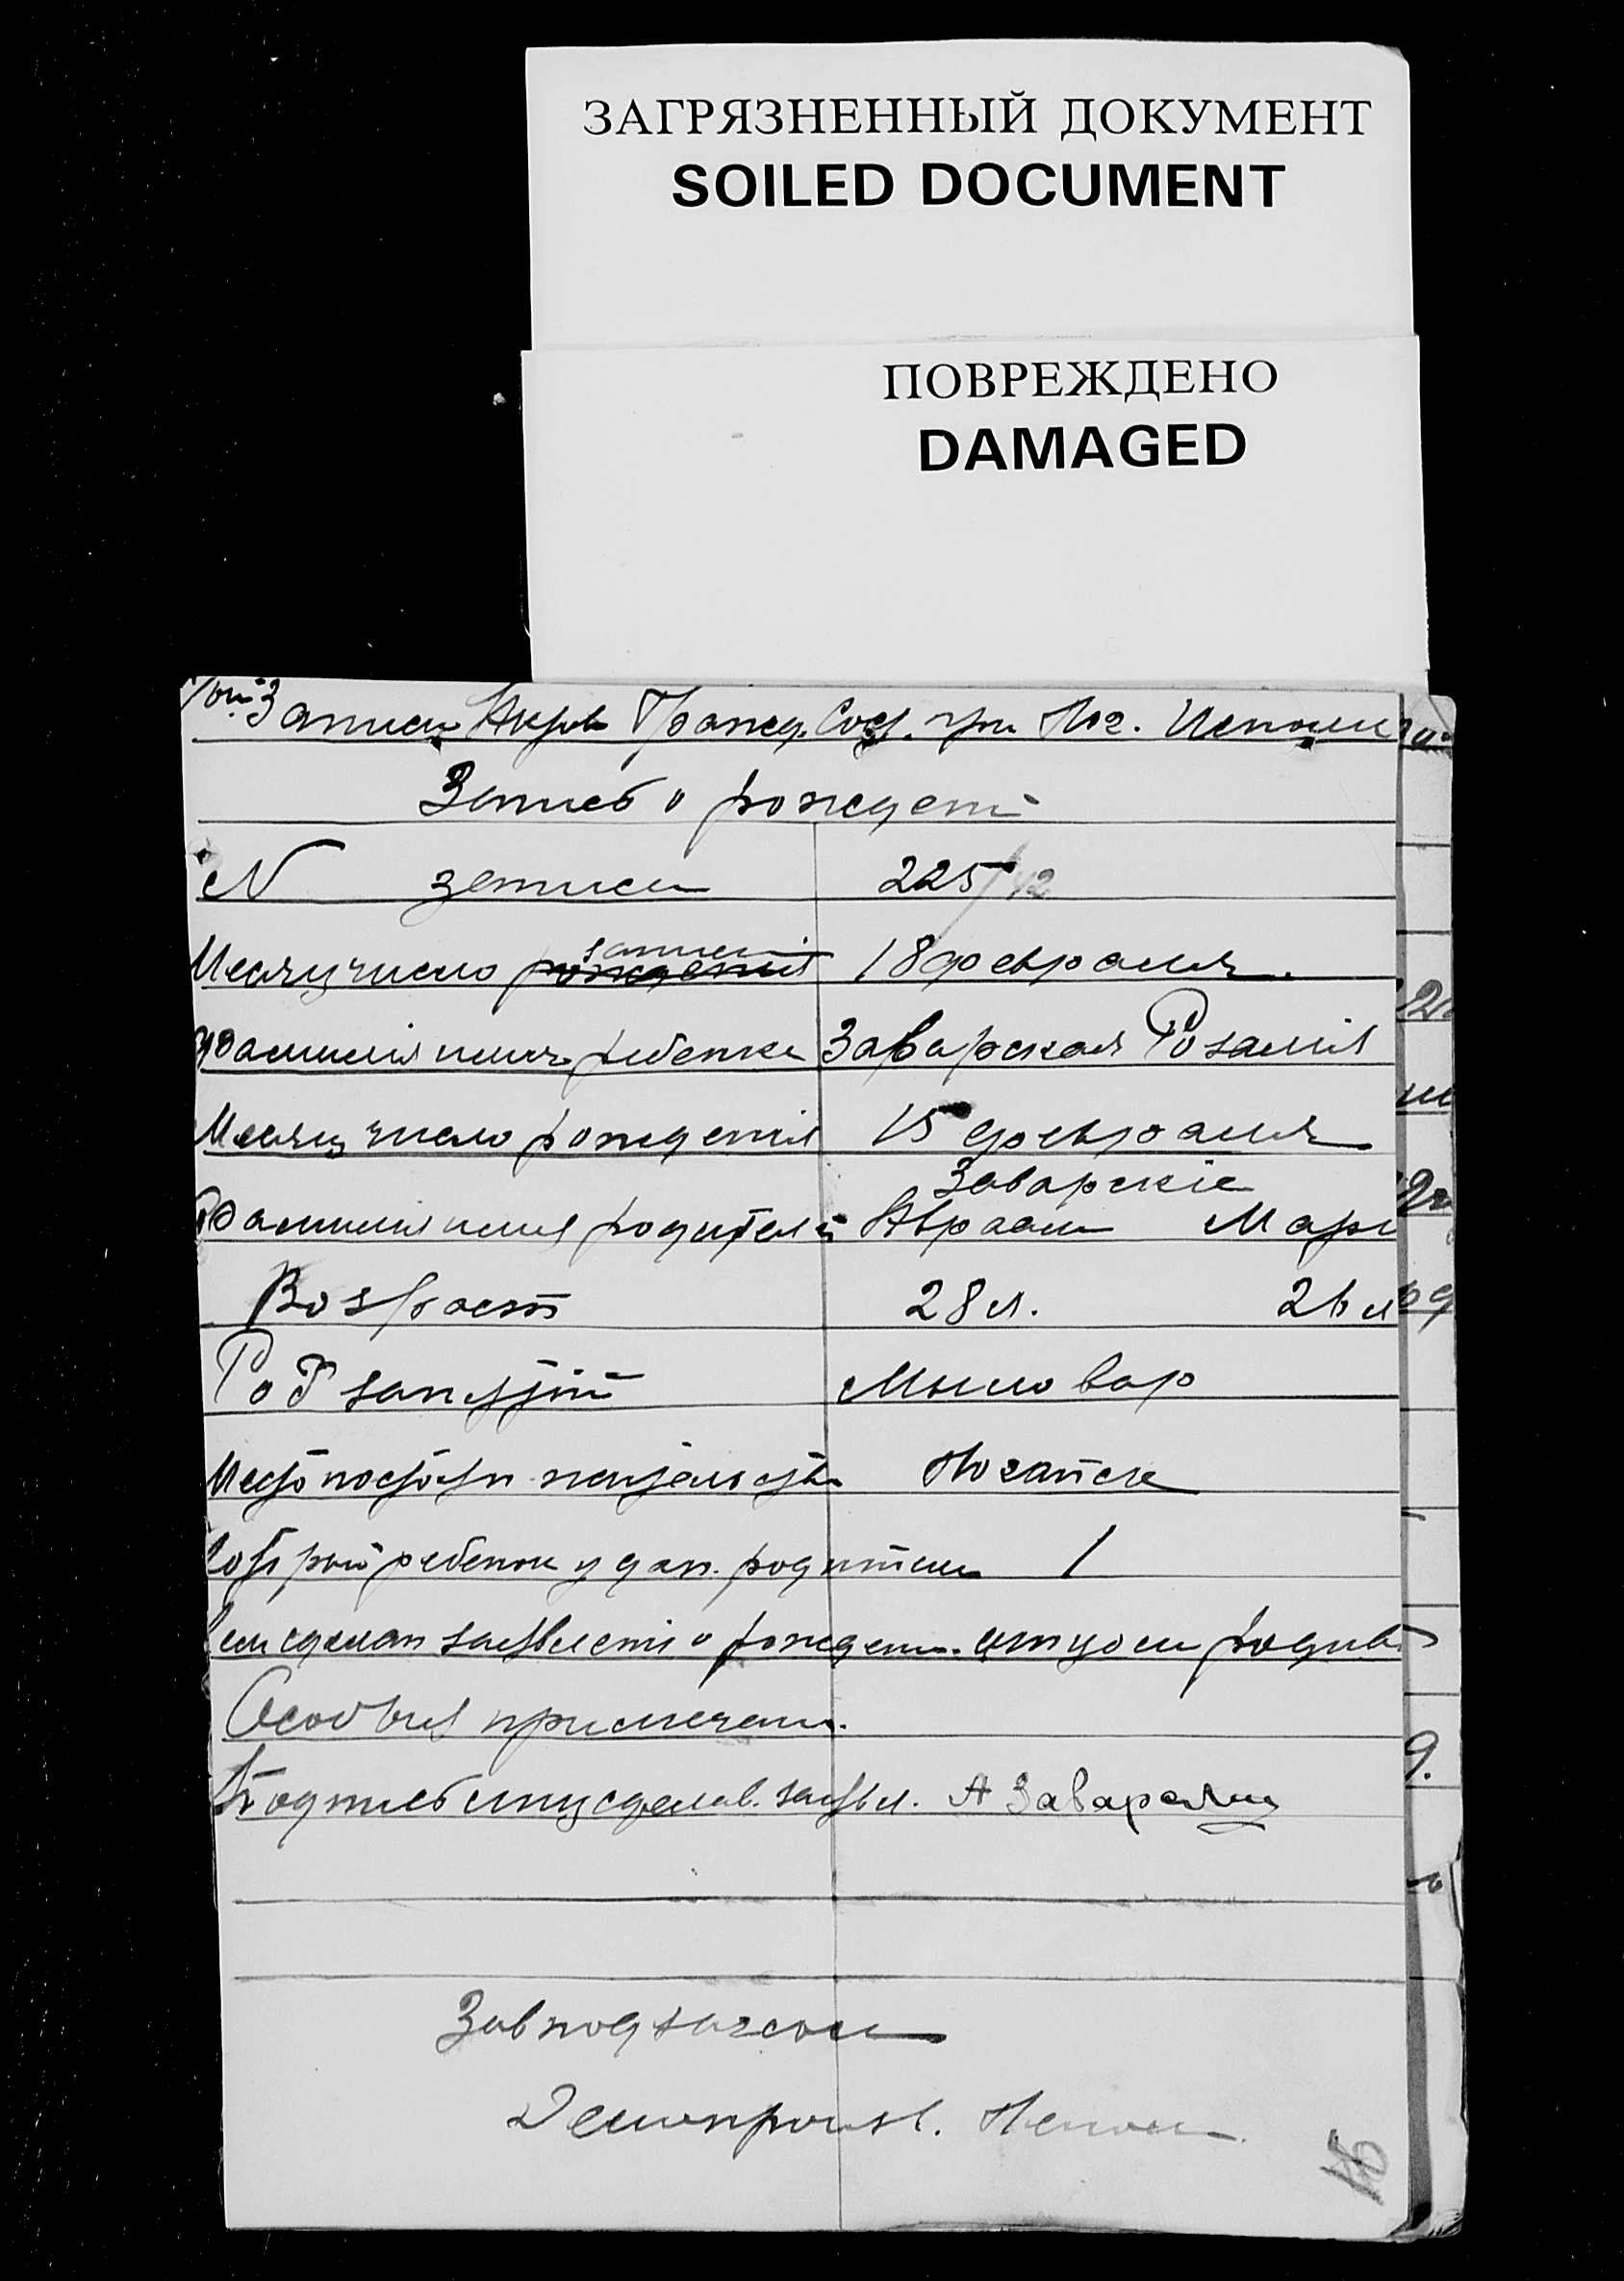 ЗАГРЯЗНЕННЫЙ ДОКУМЕНТ
SOILED DOCUMENT
ПОВРЕЖДЕНО
DAMAGED
Записи Актов Гражд. Сост. при Ног. Исполк
Запись о рождении
N записи 225/12
записи
Месяц число рождения 18 февраля.
Фамилия имя ребенка Заварская Розалия
Месяц число рождения 15 февраля
Заварскіе
Фамилия имя родителей Авраам Мари
Возраст 28 л. 26 л
Род занятій Мыловар
Место постоян. жительства Ногайск
Который ребенок у дан. родители 1
Кем сделан заявленіе о рожден. отцом родив
Особыя примечан.
Подпись лиц сделав. заявл. А Заварский
Завподзагсом
Делопроизв.